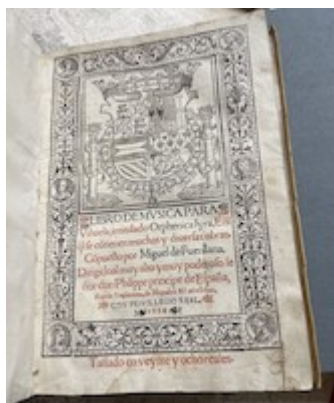 LIBRO DE MVSICA PARA
Vihuela, intitulado Orphenica lyra. En
el qual se cōtienen muchas y diuersas obras.
Cōpuesto por Miguel de Fuenllana.
Dirigido al muy alto y muy poderoso se
ñor don Philippe principe de España,
CON PRIVILEGIO REAL.
1554
Tassado en veynte y ocho reales